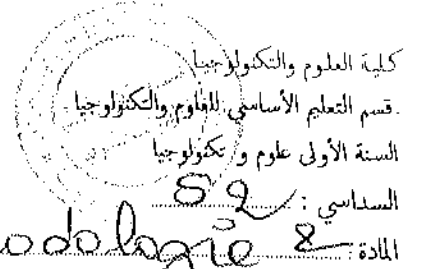 كلية العلوم والتكنولوجيا
قسم التعليم الأساسي للعلوم والتكنولوجيا
السنة الأولى علوم و تكنولوجيا
السداسي : S2
المادة : odologie 2